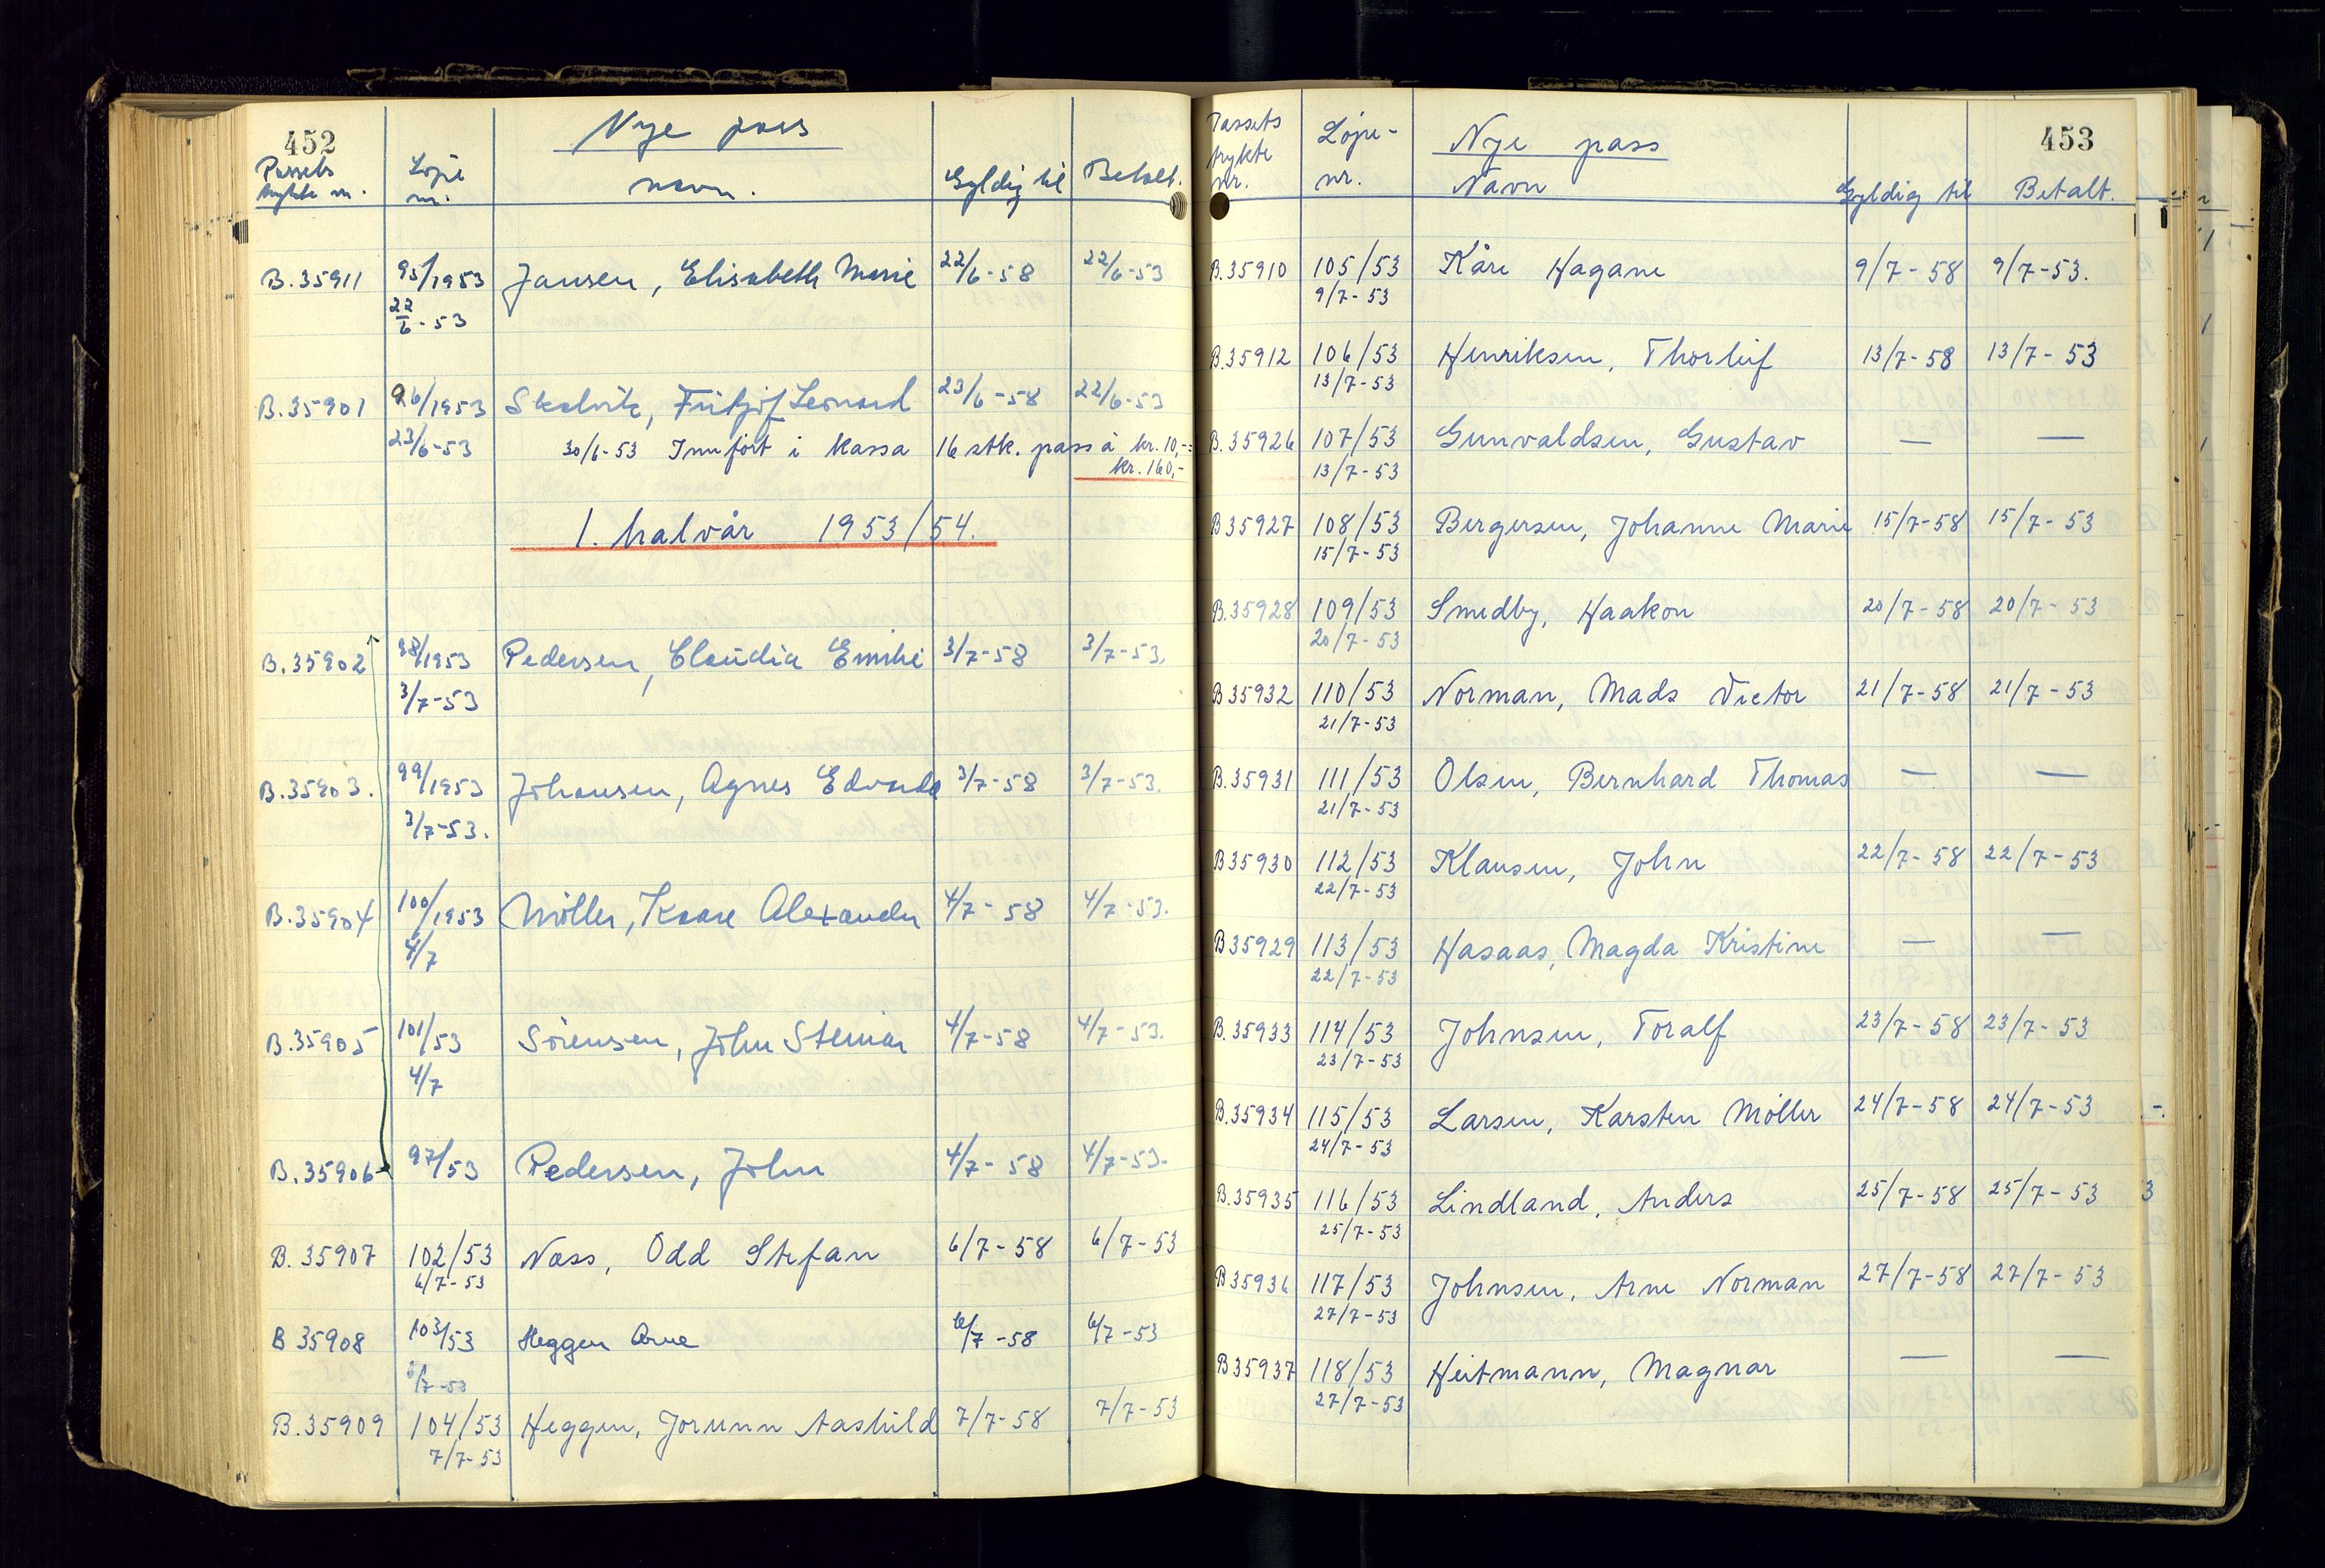 452
Nye pass
Passets trykte nr. Löpe nr. navn. Gyldig til Betalt.
B.35911 95/1953 Jansen, Elisabeth Marie 22/6-58 22/6-53
22/6-53
B.35901 96/1953 Skalvik, Fritjof Leonard 23/6-58 22/6-53
23/6-53 30/6-53 Innfört i kassa 16 stk. pass à kr. 10,-=
kr. 160,-
1. halvår 1953/54.
B.35902 98/1953 Pedersen, Claudia Emilie 3/7-58 3/7-53.
3/7-53
B.35903. 99/1953 Johansen, Agnes Edvarda 3/7-58 3/7-53.
3/7-53.
B.35904 100/1953 Möller, Kaare Alexander 4/7-58 4/7-53.
4/7
B.35905 101/53 Sörensen, John Steinar 4/7-58 4/7-53.
4/7
B.35906 97/53 Pedersen, John 4/7-58 4/7-53.
B.35907 102/53 Næss, Odd Stefan 6/7-58 6/7-53
6/7-53
B 35908 103/53 Heggen Arne 6/7-58 6/7-53
6/7-53
B.35909 104/53 Heggen, Jorunn Aashild 7/7-58 7/7-53
7/7-53
453
Passets trykte nr. Löpe-nr. Nye pass
Navn Gyldig til Betalt.
B.35910 105/53 Kåre Hagane 9/7-58 9/7-53.
9/7-53
B.35912 106/53 Henriksen, Thorleif 13/7-58 13/7-53
13/7-53
B.35926 107/53 Gunvaldsen, Gustav — —
13/7-53
B35927 108/53 Bergersen, Johanne Marie 15/7-58 15/7-53
15/7-53
B.35928 109/53 Smedby, Haakon 20/7-58 20/7-53
20/7-53
B35932 110/53 Norman, Mads Victor 21/7-58 21/7-53
21/7-53
B.35931 111/53 Olsen, Bernhard Thomas — —
21/7-53
B35930 112/53 Klausen, John 22/7-58 22/7-53
22/7-53
B35929 113/53 Hasaas, Magda Kristine — —
22/7-53
B.35933 114/53 Johnsen, Toralf 23/7-58 23/7-53
23/7-53
B.35934 115/53 Larsen, Karsten Möller 24/7-58 24/7-53
24/7-53
B.35935 116/53 Lindland, Anders 25/7-58 25/7-53
25/7-53
B35936 117/53 Johnsen, Arne Norman 27/7-58 27/7-53
27/7-53
B35937 118/53 Heitmann, Magnar — —
27/7-53